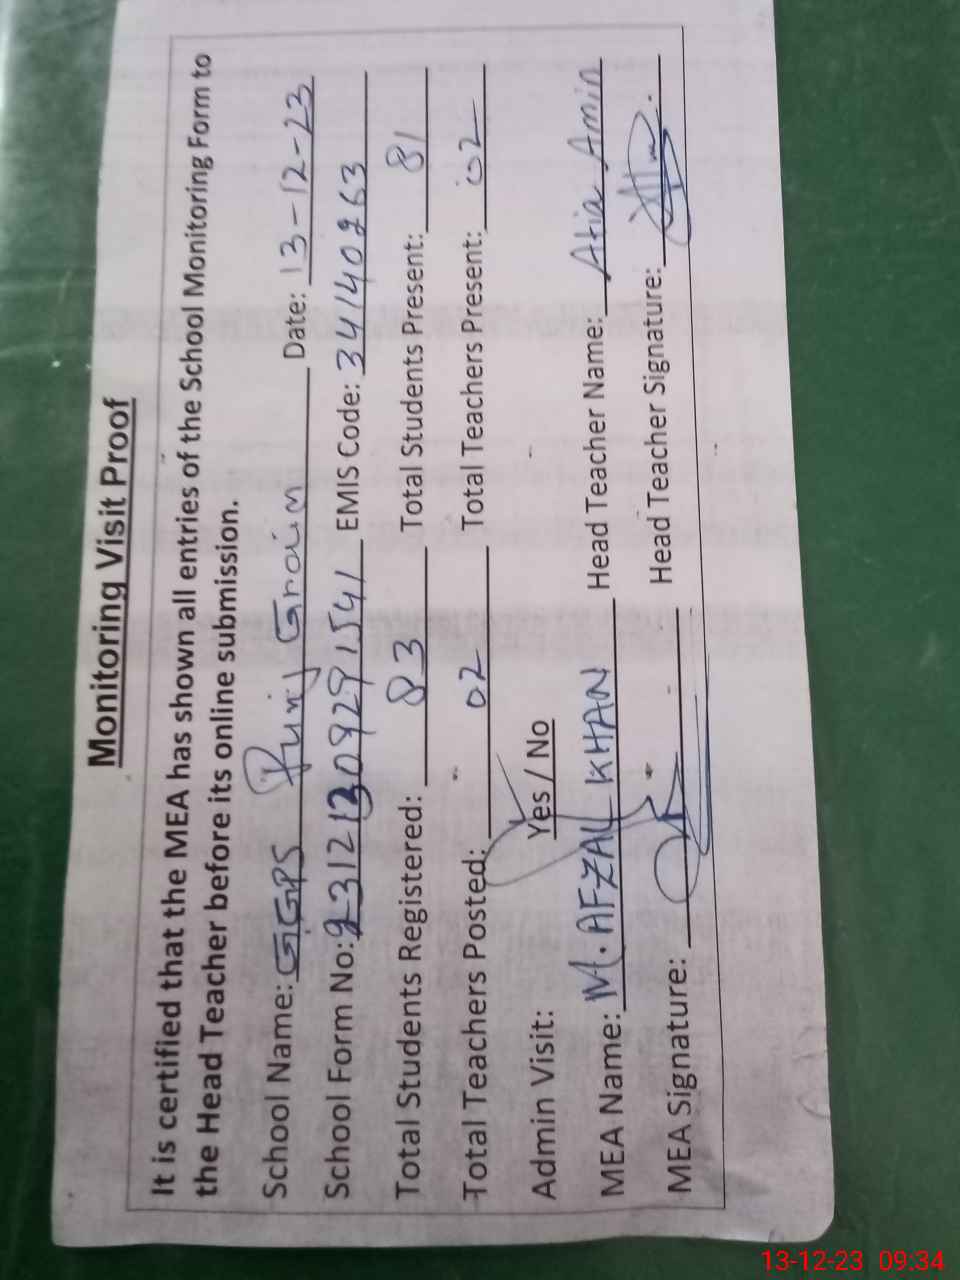 Monitoring Visit Proof
It is certified that the MEA has shown all entries of the School Monitoring Form to
the Head Teacher before its online submission.
School Name: GGPS Graim Date: 13-12-23
School Form No: EMIS Code: 34140263
Total Students Registered: 83 Total Students Present: 81
Total Teachers Posted: 02 Total Teachers Present: 02
Admin Visit: Yes / No
MEA Name: M. AFZAL KHAN Head Teacher Name: Atia Amin
MEA Signature: Head Teacher Signature:
13-12-23 09:34